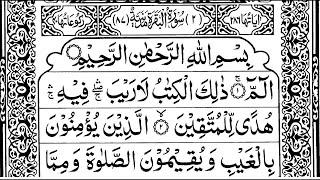 اٰیَاتُهَا ٢٨٦ (٢) سُوْرَةُ الْبَقَرَةِ مَدَنِيَّةٌ (٨٧) رُكُوْعَاتُهَا
بِسْمِ اللّٰهِ الرَّحْمٰنِ الرَّحِيْمِ
الٓمّٓ ۚ ذٰلِكَ الْكِتٰبُ لَا رَيْبَ ۛ فِيْهِ ۛ
هُدًى لِّلْمُتَّقِيْنَ ۙ الَّذِيْنَ يُؤْمِنُوْنَ
بِالْغَيْبِ وَيُقِيْمُوْنَ الصَّلٰوةَ وَمِمَّا